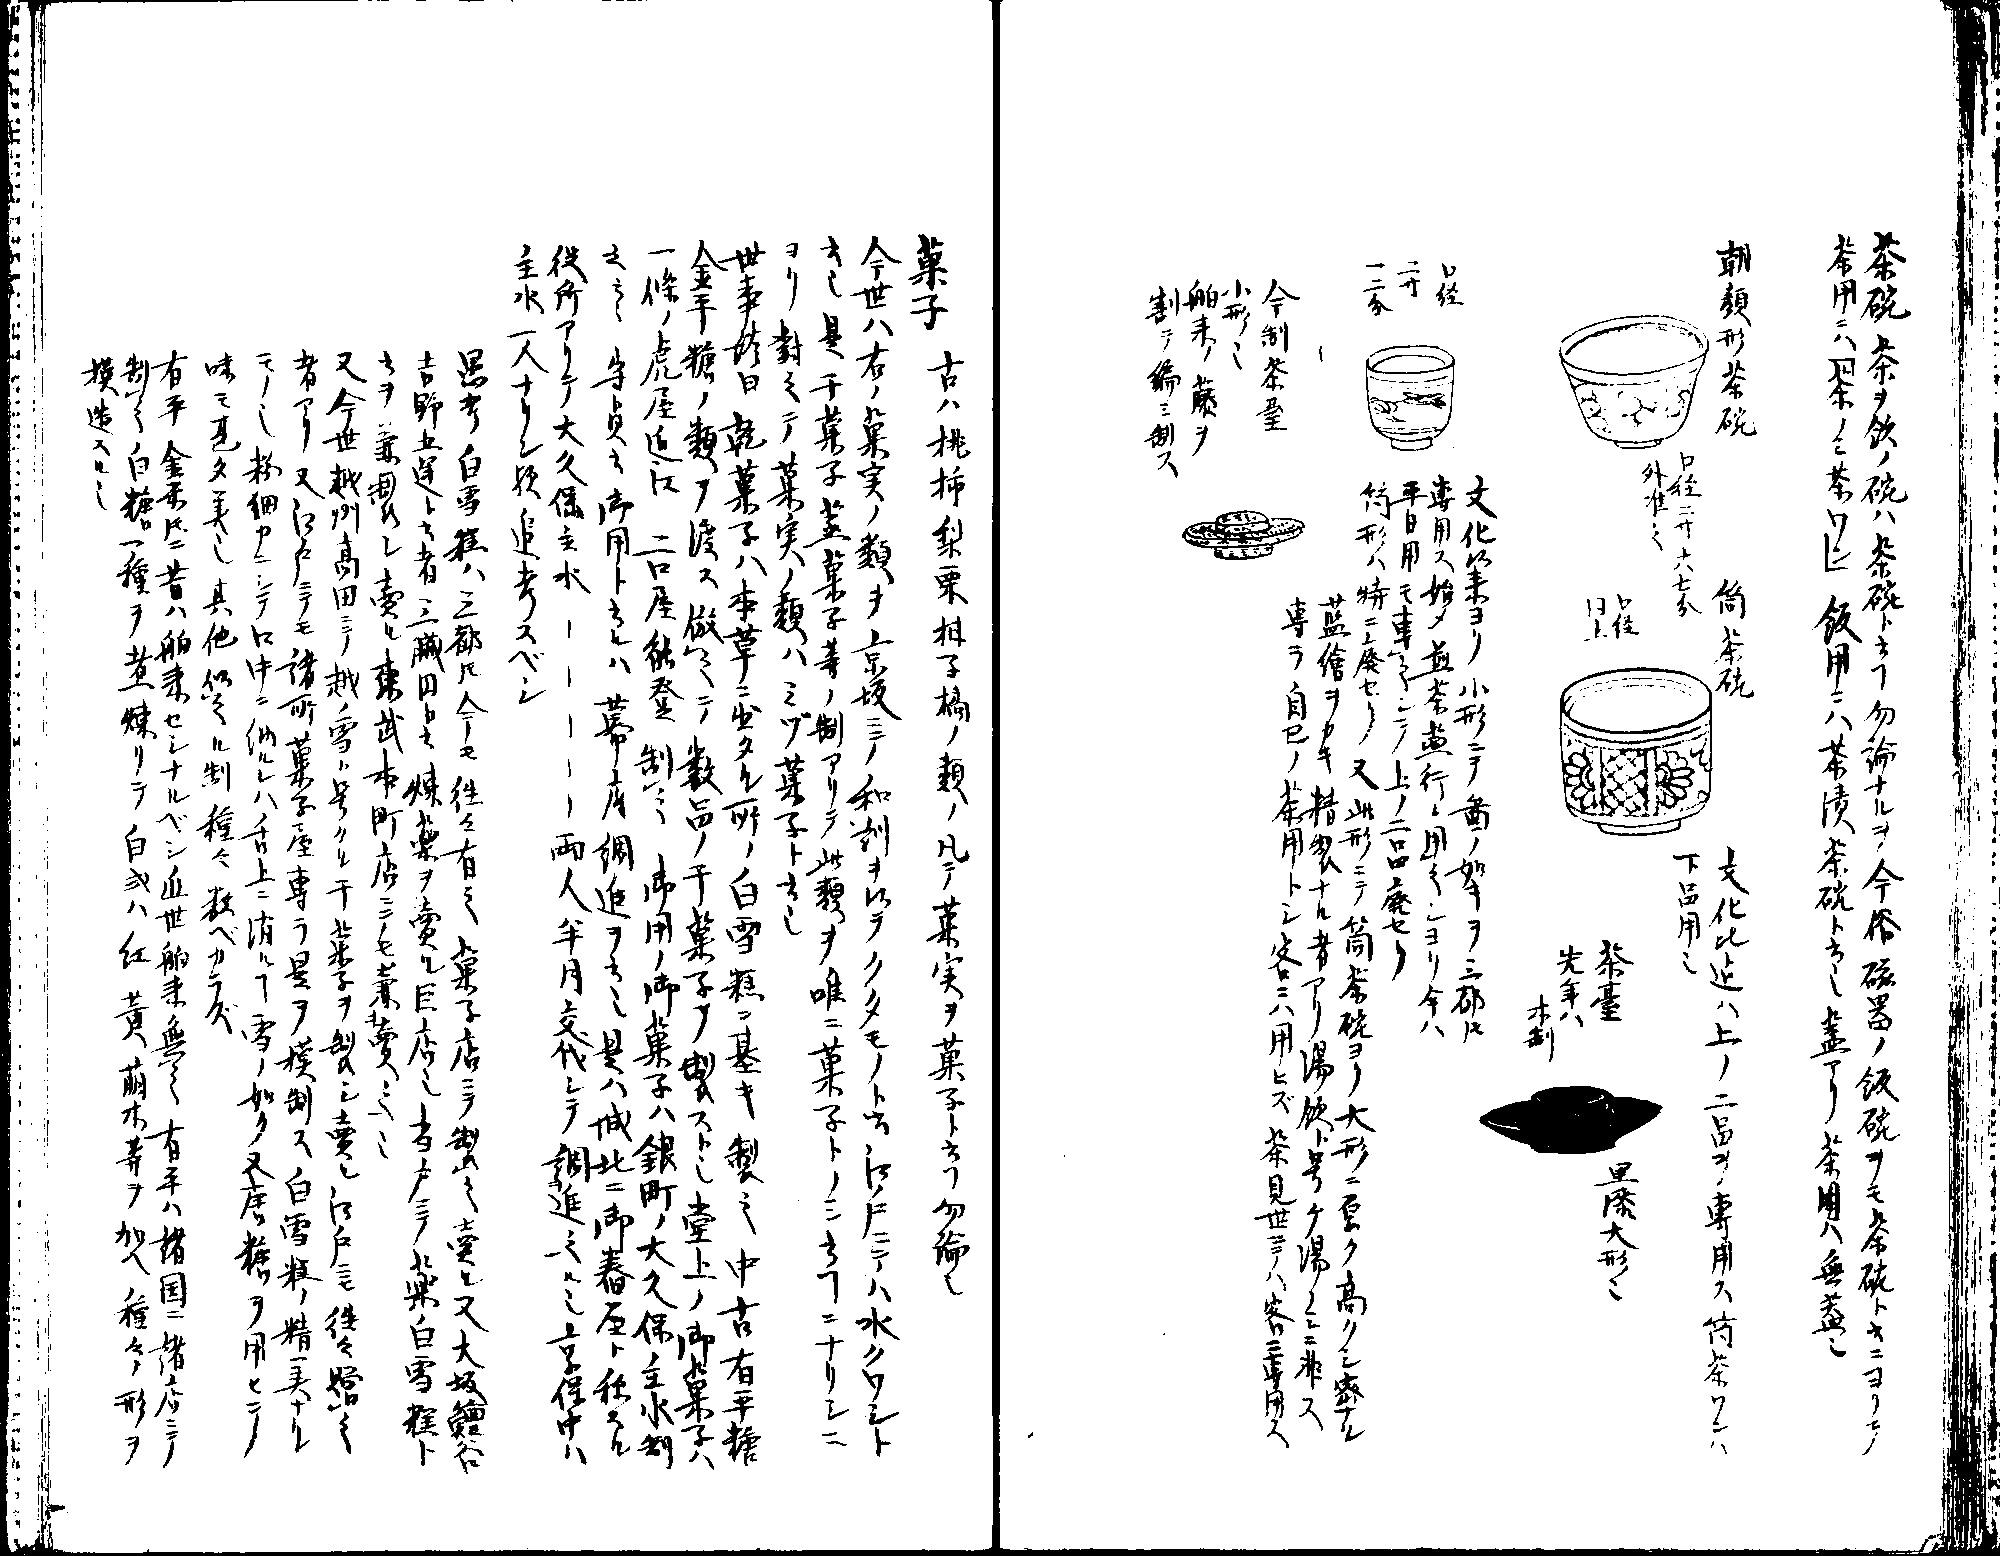 茶碗 茶ヲ飲ノ碗ハ茶碗ト云フ勿論ナルヲ今俗磁器ノ飯碗ヲモ茶碗ト云ニヨリテ
茶用ニハ「茶ノミ茶ワン」飯用ニハ茶漬茶碗ト云也 蓋アリ 茶用ハ無蓋也
朝顔形茶碗
口径二寸六七分
外准之
筒茶碗
口径
同上
文化比迄ハ上ノ二品ヲ専用ス筒茶ワンハ
下品用也
茶臺
先年ハ
木制
黒漆大形也
文化以来ヨリ小形ニテ図ノ如キヲ三都トモ
専用ス始メ煎茶盛行ト用之シヨリ今ハ
平日用モ専之シテ上ノ二品廃セリ
筒形ハ特ニ廃セリ 又此形ニテ筒茶碗ヨリ大形ニ厚ク高クシ
藍繪ヲカキ精製ナル者アリ湯飲ト号ケ湯ノミニ非ス
専ラ自己ノ茶用トシ客ニハ用ヒズ茶見世ニテハ客ニ専用ス
口径
二寸
一二分
今制茶臺
小形也
舶来ノ藤ヲ
割テ編ミ制ス
菓子 古ハ桃柿梨栗柑子橘ノ類ノ凡テ菓実ヲ菓子ト云フ勿論也
今世ハ右ノ菓実ノ類ヲ京坂ニテ和訓ヲ以テクダモノト云 江戸ニテハ水クワシト
云也 是干菓子蒸菓子等ノ制アリテ此類ヲ唯ニ菓子トノミ云フニナリシニ
ヨリ對之テ菓実ノ類ハミヅ菓子ト云也
世事談曰 乾菓子ハ本草ニ出タル所ノ白雪糕ニ基キ製之 中古有平糖
金平糖ノ類ヲ渡ス 倣之テ数品ノ干菓子ヲ製スト也 堂上ノ御菓子ハ
一條ノ虎屋近江 二口屋能登 制之 御用ノ御菓子ハ銀町ノ大久保主水制
之 幕府調進ヲ云也 是ハ城北ニ御春屋ト称スル
役所アリテ大久保主水ーーーーー両人半月交代シテ調進之ル也 享保中ハ
主水一人ナリシ 後追考スベシ
愚考 白雪糕ハ三都トモ今モ往々有之 菓子店ニテ製之賣ル又大坂鰻谷
吉野五運ト云者 三臓円ト云煉薬ヲ賣ル巨店也 当戸ニテ薬白雪糕ト
云ヲ兼製シ賣ル 東武本町店ニテモ兼賣之也
又今世越州高田ニテ越ノ雪ト号クル干菓子ヲ製シ賣ル 江戸ニモ往々
者アリ 又江戸ニテモ諸所菓子屋専ラ是ヲ模制ス 白雪糕ノ精美ナル
モノ也 粉細カニシテ口中ニ納レハ舌上ニ消ルコト雪ノ如ク 又唐糖ヲ用ヒテ
味モ甚タ美也 其他似之ル制種々数ベカラズ
有平 金平トモニ昔ハ舶来セシナルベシ 近世舶来無之 有平ハ諸国ニ諸店ニテ
制之 白糖一種ヲ煮煉リテ白或ハ紅 黄 萠木等ヲ加ヘ 種々ノ形ヲ
模造スル也